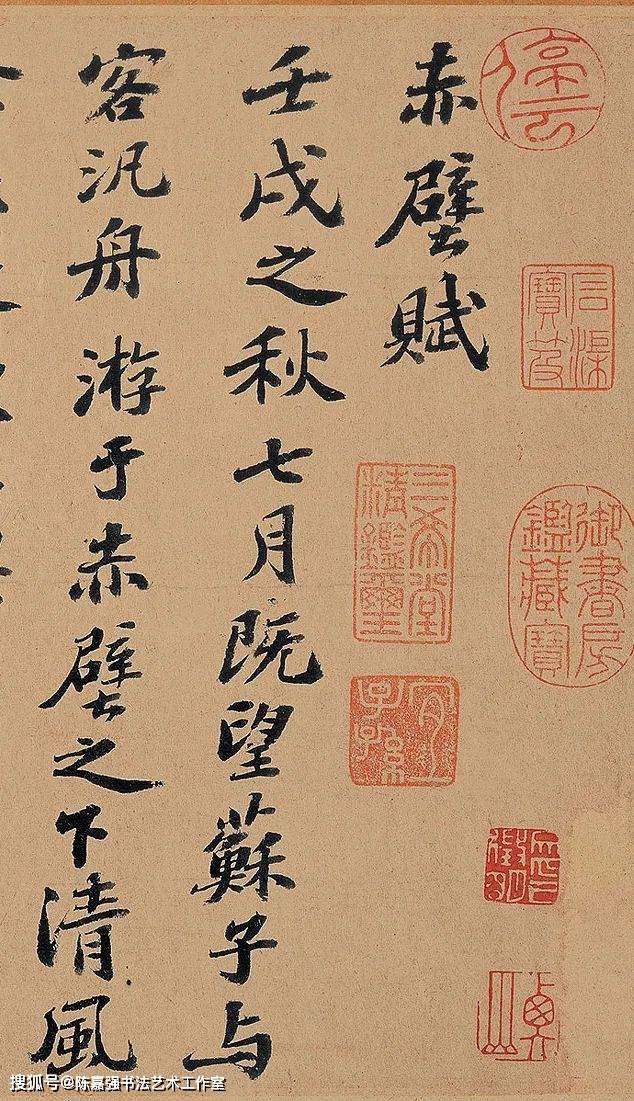 赤壁賦
壬戌之秋七月既望蘇子与
客汎舟游于赤壁之下清風
三希堂精鑑璽
宜子孫
御書房鑑藏寶
搜狐号@陈嘉强书法艺术工作室